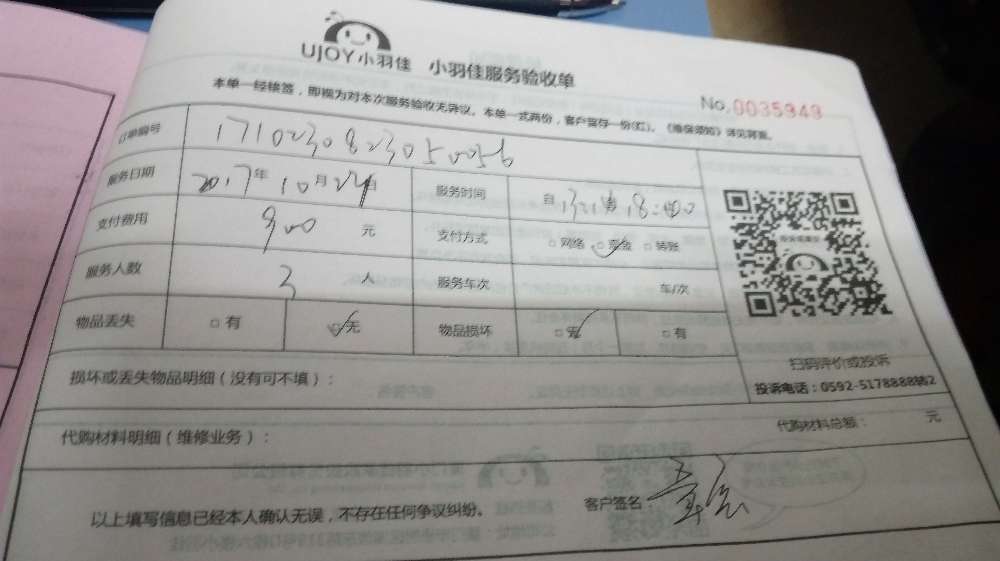 UJOY小羽佳 小羽佳服务验收单
No.0035949
本单一经接签，即视为对本次服务验收无异议。本单一式两份，客户留存一份(红)。《维保须知》详见背面。
订单编号 1710230823050056
服务日期 2017年10月24日 服务时间 自 18:00
支付费用 900 元 支付方式 □网络 □现金 □转账
服务人数 3 人 服务车次 车/次
物品丢失 □有 □无 物品损坏 □无 □有
扫码评价或投诉
投诉电话：0592-5178888转2
损坏或丢失物品明细（没有可不填）：
代购材料明细（维修业务）： 代购材料总额： 元
以上填写信息已经本人确认无误，不存在任何争议纠纷。 客户签名：